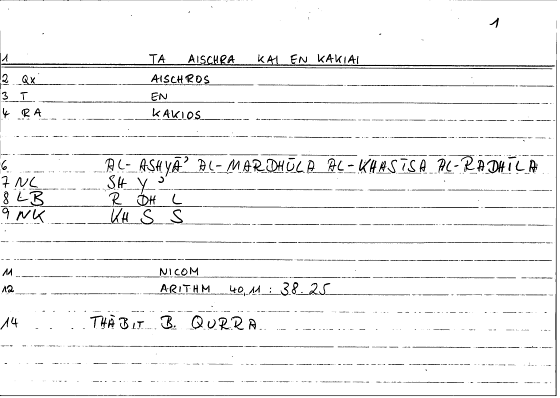 1
1 TA AISCHRA KAI EN KAKIAI
2 QX AISCHROS
3 T EN
4 RA KAKIOS
6 AL-ASHYĀʾ AL-MARDHŪLA AL-KHASĪSA AL-RADHĪLA
7 NL SH Y ʾ
8 LB R DH L
9 NK KH S S
11 NICOM
12 ARITHM 40,11 : 38.25
14 THĀBIT B. QURRA